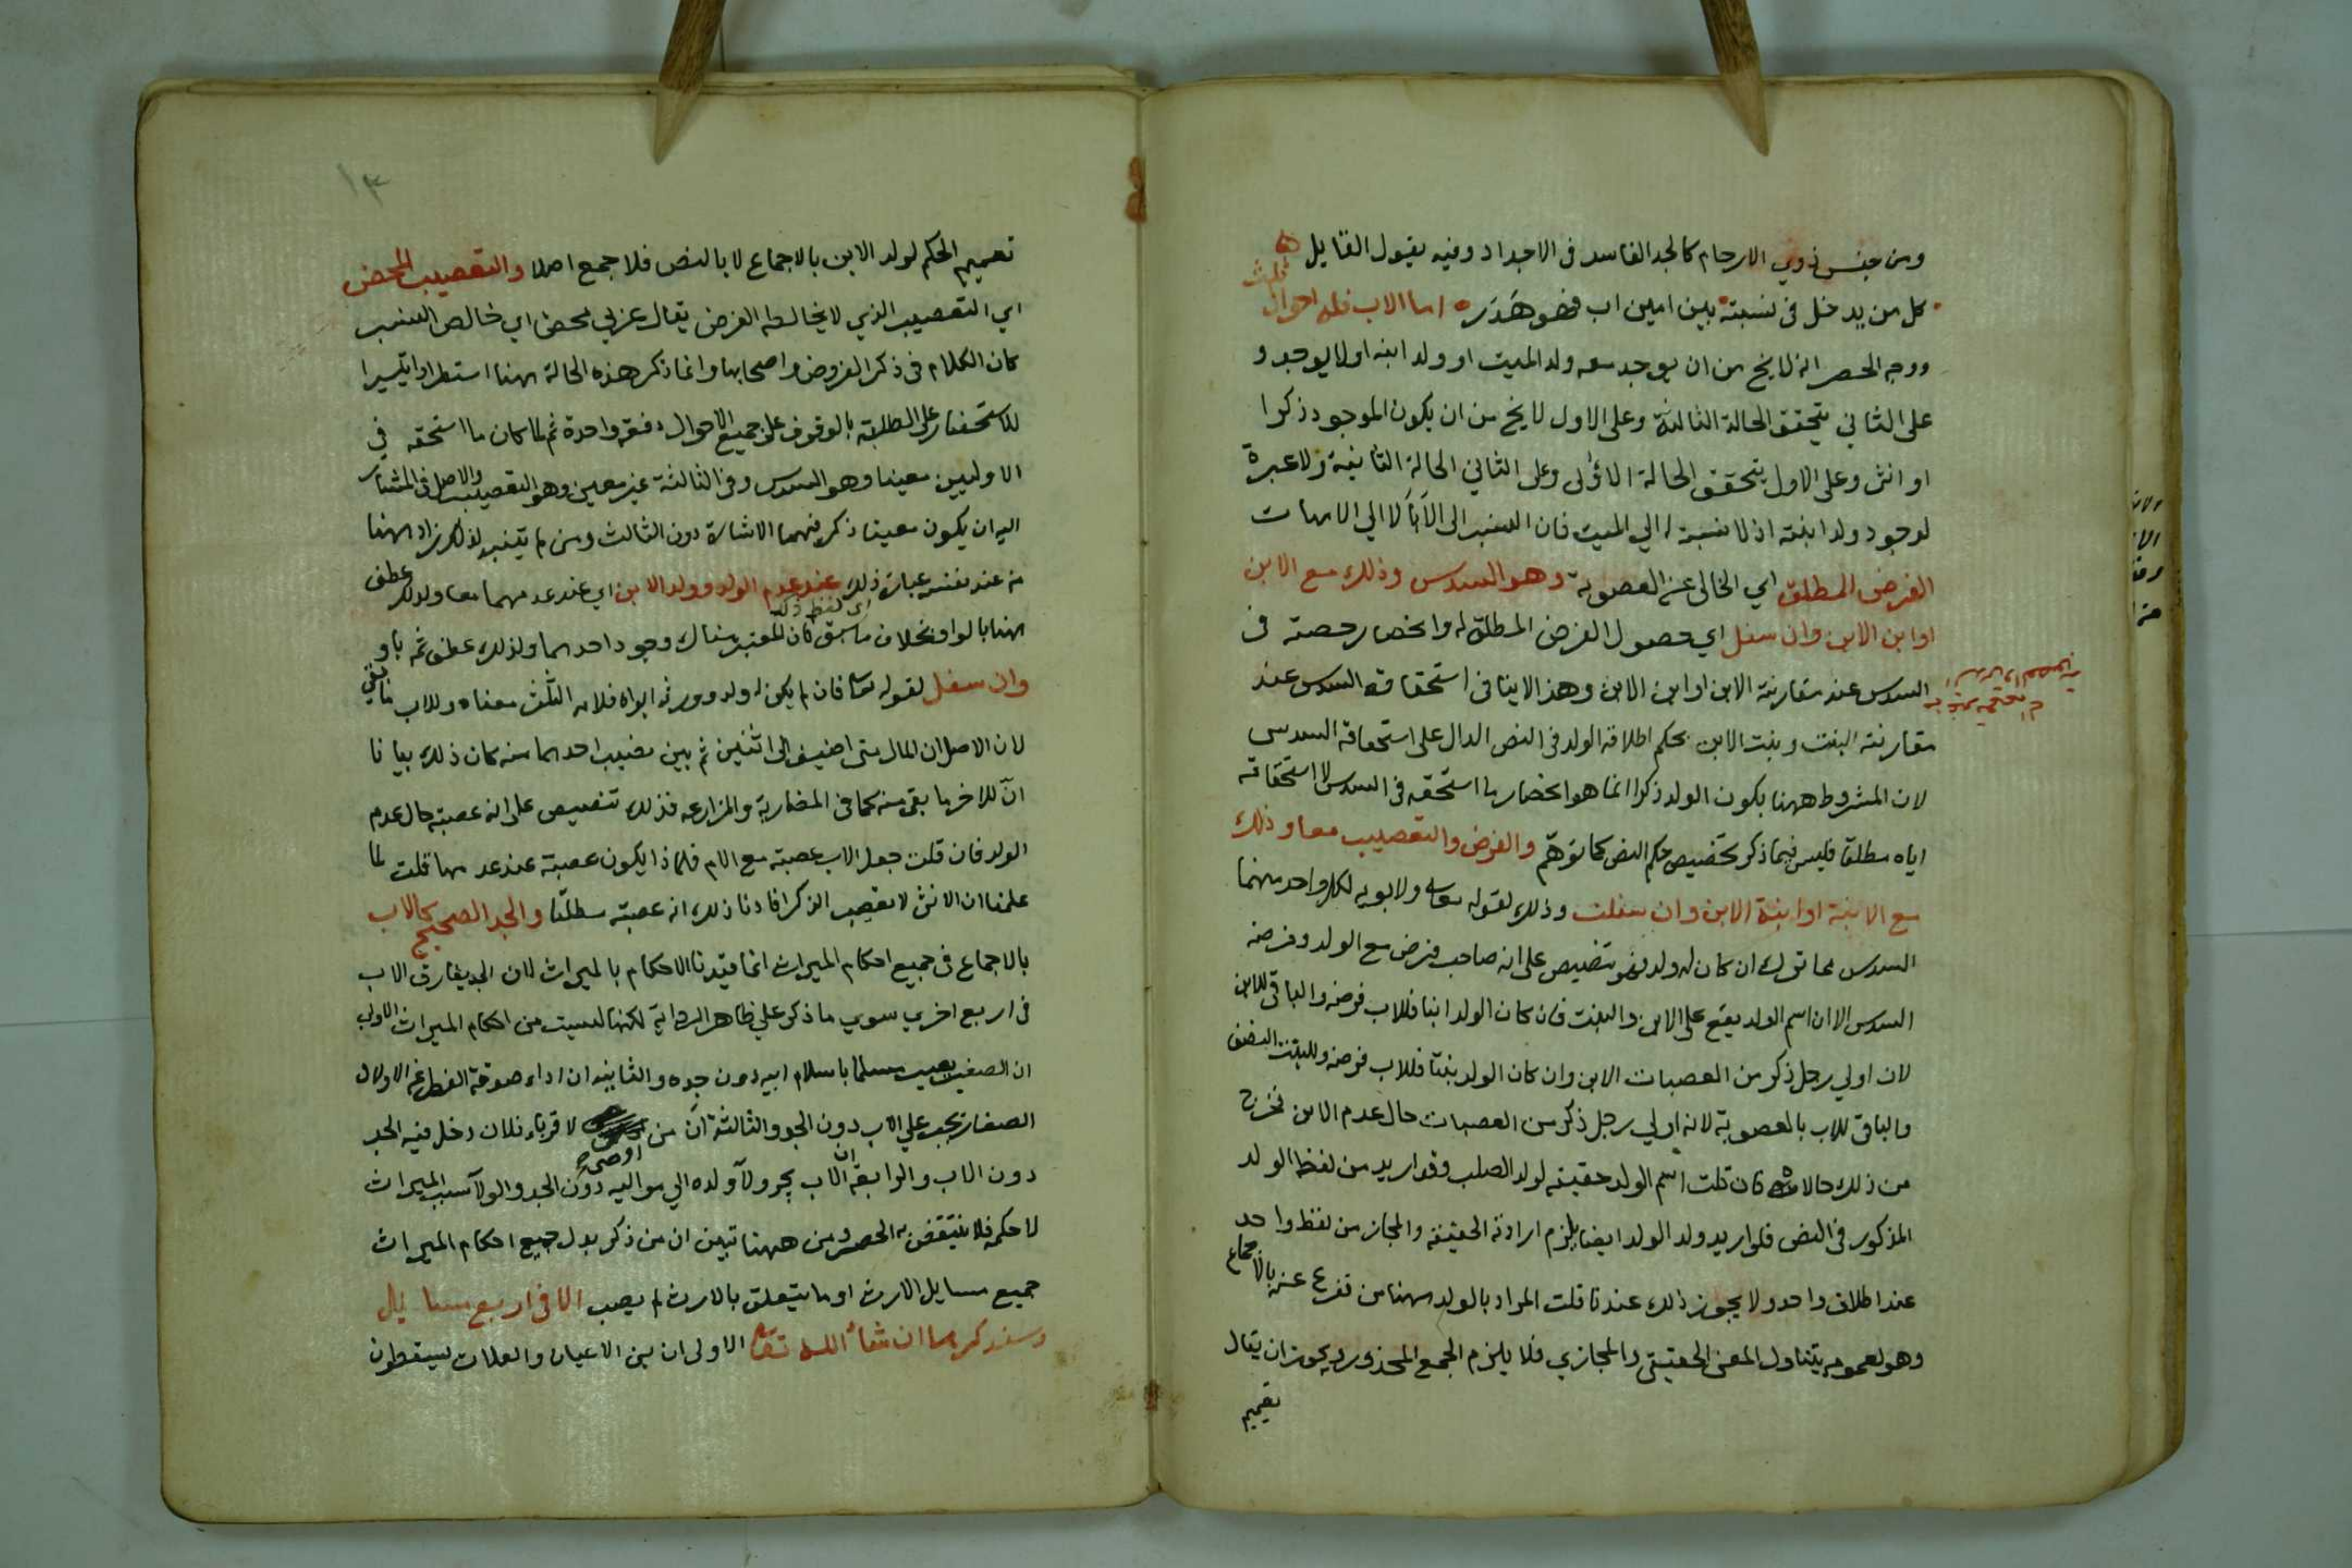 ومن جنس ذوي الارحام كالجد الفاسد في الاجداد وفيه يقول القايل
كل من يدخل في نسبته بين امين اب فهو هَدَر اما الاب فله احوال ثلث
ووجه الحصر انه لا يخ من ان يوجد معه ولد الميت او ولد ابنه اولا يوجد و
على الثاني يتحقق الحالة الثالثة وعلى الاول لا يخ من ان يكون الموجود ذكرا
او انثى وعلى الاول يتحقق الحالة الاولى وعلى الثاني الحالة الثانية ولا عبرة
لوجود ولد ابنته اذ لا نسبة له الي الميت فان النسب الى الآباَ لا الي الامهات
الفرض المطلق اي الخالى عن العصوبة وهو السدس وذلك مع الابن
او ابن الابن وان سفل اي حصول الفرض المطلق له وانحصار حصته في
السدس عند مقارنة الابن او ابن الابن وهذا لاينافى استحقاقه السدس عند
مقارنته البنت وبنت الابن بحكم اطلاق الولد في النص الدال على استحقاقه السدس
لان المشروط ههنا بكون الولد ذكرا انما هو انحصار ما استحقه في السدس لا استحقاقه
اياه مطلقا فليس فيما ذكر تخصيص حكم النص كما توهّم والفرض والتعصيب معا وذلك
مع الابنة او ابنة الابن وان سفلت وذلك لقوله تعالى ولابويه لكل واحد منهما
السدس مما ترك ان كان له ولد فهو تنصيص على انه صاحب فرض مع الولد وفرضه
السدس الا ان اسم الولد يقع على الابن والبنت فان كان الولد ابنا فللاب فرضه والباقى للابن
لان اولي رجل ذكر من العصبات الابن وان كان الولد بنتا فللاب فرضه وللبنت النصف
والباقى للاب بالعصوبة لانه اولي رجل ذكر من العصبات حال عدم الابن فخرج
من ذلك حالاته فان قلت اسم الولد حقيقه لولد الصلب وقد اريد من لفظ الولد
المذكور في النص فلو اريد ولد الولد ايضا يلزم ارادة الحقيقة والمجاز من لفظ واحد
عند اطلاق واحد ولا يجوز ذلك عندنا قلت المراد بالولد ههنا من تفرع عنه بالاجماع
وهو لعمومه يتناول المعنى الحقيقى والمجازي فلا يلزم الجمع المحذور او يجوز ان يقال
تعميم
١٣
تعميم الحكم لولد الابن بالاجماع لا بالنص فلا جمع اصلا والتعصيب المحض
اي التعصيب الذي لا يخالطه الفرض يقال عربي محض اي خالص النسب
كان الكلام في ذكر الفروض واصحابها وانما ذكر هذه الحالة ههنا استطرادا تيسيرا
للاستحضار على الطلبة بالوقوف على جميع الاحوال دفعة واحدة ثم لما كان ما استحقه في
الاوليين معينا وهو السدس وفي الثالثة غير معين وهو التعصيب والاصل في المشار
اليه ان يكون معينا ذكر فيهما الاشارة دون الثالث ومن لم يتنبه لذلك زاد ههنا
من عند نفسه عبارة ذلك عند عدم الولد وولد الابن اي عند عدمهما معا ولذلك عطف
اي لفظ ذلك
ههنا بالواو بخلاف ما سبق فان المعتبر هناك وجود احدهما ولذلك عطف ثمه باو
وان سفل لقوله تعالى فان لم يكن له ولد وورثه ابواه فلامه الثلث معناه وللاب ما بقي
لان الاصل ان المال متى اضيف الى اثنين ثم بين نصيب احدهما منه كان ذلك بيانا
انّ للاخر ما بقى منه كما في المضاربة والمزارعه فذلك تنصيص على انه عصبته حال عدم
الولد فان قلت جعل الاب عصبته مع الام فلماذا يكون عصبته عند عدمها قلت لما
علمنا ان الانثى لا تعصب الذكر افادنا ذلك انه عصبته مطلقا والجد الصحيح كالاب
بالاجماع في جميع احكام الميراث انما قيّدنا الاحكام بالميراث لان الجد يفارق الاب
في اربع اخري سوي ما ذكر علي ظاهر الرواية لكنها ليست من احكام الميراث الاولى
ان الصغير يصير مسلما باسلام ابيه دون جده والثانيه ان اداء صدقة الفطر عن الاولاد
الصغار تجب علي الاب دون الجد والثالثة انّ من اوصى لاقرباء فلان دخل فيه الجد
دون الاب والرابعة ان الاب يجر ولآ ولده الي مواليه دون الجد والولآ سبب الميراث
لا حكمه فلا ينتقض به الحصر ومن ههنا تبين ان من ذكر بدل جميع احكام الميراث
جميع مسايل الارث او ما يتعلق بالارث لم يصب الا في اربع مسايل
وسنذكرها ان شاء الله تعالى الاولى ان بني الاعيان والعلات يسقطون